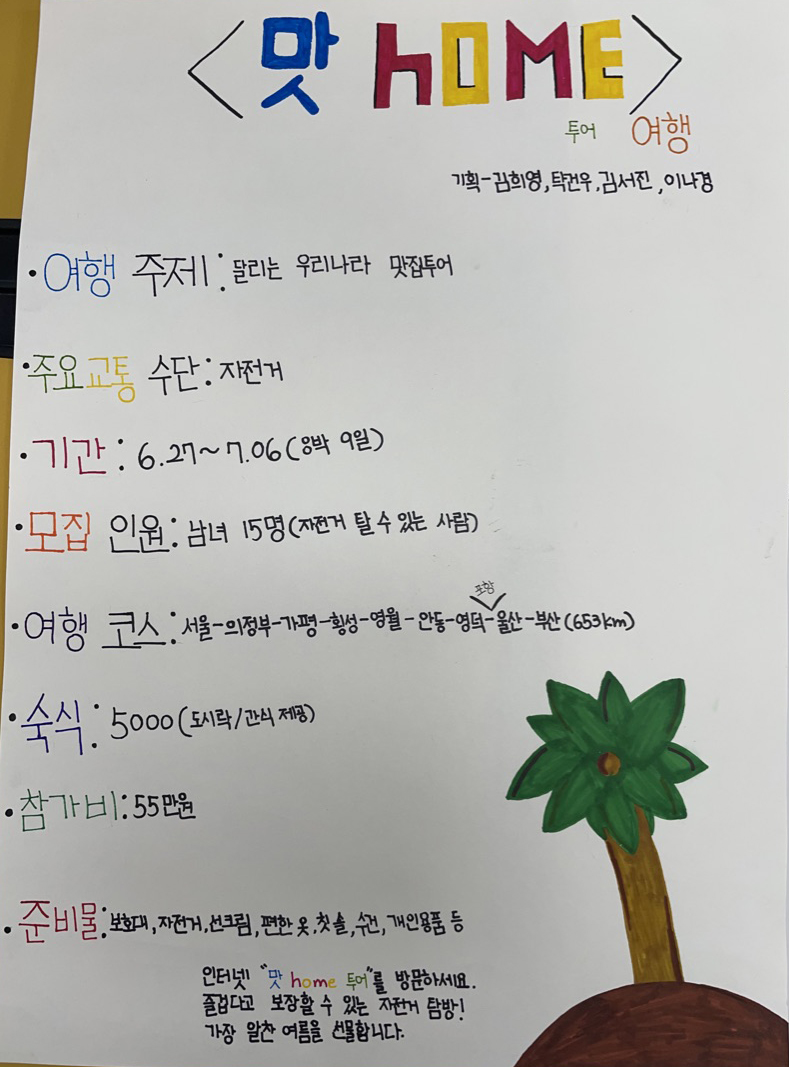 <맛 hOME>
투어 여행
기획-김희영,탁건우,김서진,이나경
•여행 주제:달리는 우리나라 맛집투어
•주요교통 수단:자전거
•기간:6.27~7.06(8박 9일)
•모집 인원:남녀 15명(자전거 탈 수 있는 사람)
포항
•여행 코스:서울-의정부-가평-횡성-영월-안동-영덕-울산-부산(653km)
•숙식:5000(도시락/간식 제공)
•참가비:55만원
•준비물:보호대,자전거,선크림,편한 옷,칫솔,수건,개인용품 등
인터넷 "맛 home 투어"를 방문하세요.
즐겁다고 보장할 수 있는 자전거 탐방!
가장 알찬 여름을 선물합니다.